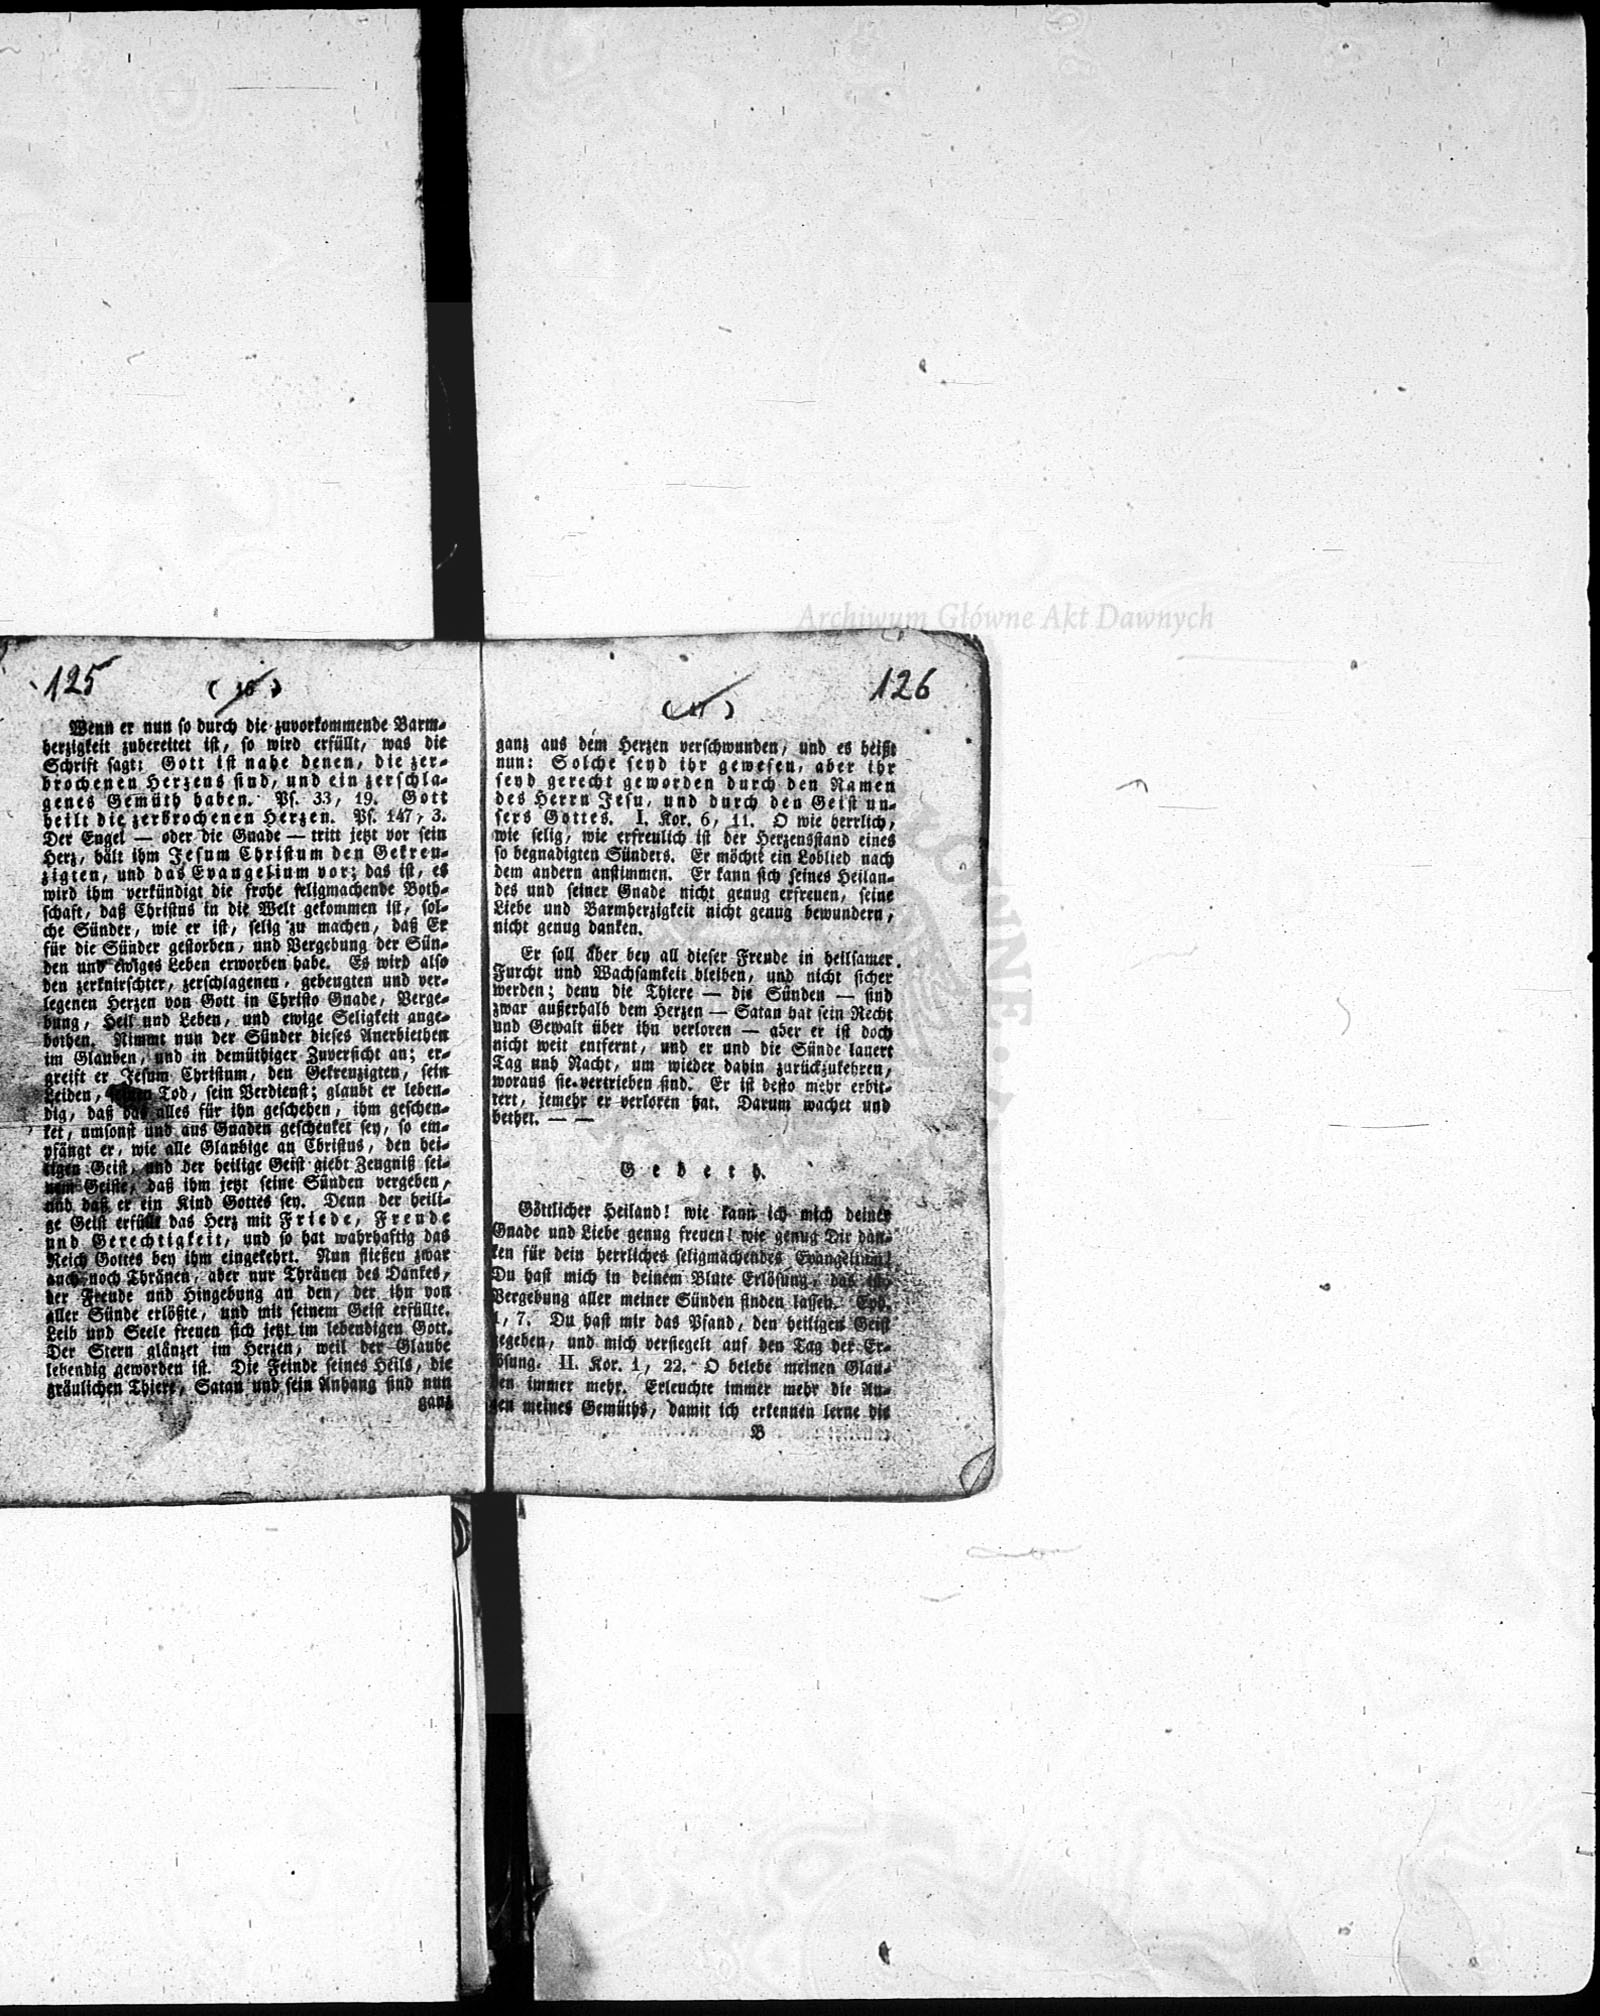 Archiwum Główne Akt Dawnych
125
( 16 )
Wenn er nun so durch die zuvorkommende Barm-
herzigkeit zubereitet ist, so wird erfüllt, was die
Schrift sagt: Gott ist nahe denen, die zer-
brochenen Herzens sind, und ein zerschla-
genes Gemüth haben. Ps. 33, 19. Gott
heilt die zerbrochenen Herzen. Ps. 147, 3.
Der Engel — oder die Gnade — tritt jetzt vor sein
Herz, hält ihm Jesum Christum den Gekreu-
zigten, und das Evangelium vor; das ist, es
wird ihm verkündigt die frohe seligmachende Both-
schaft, daß Christus in die Welt gekommen ist, sol-
che Sünder, wie er ist, selig zu machen, daß Er
für die Sünder gestorben, und Vergebung der Sün-
den und ewiges Leben erworben habe. Es wird also
den zerknirschter, zerschlagenen, gebeugten und ver-
legenen Herzen von Gott in Christo Gnade, Verge-
bung, Heil und Leben, und ewige Seligkeit ange-
bothen. Nimmt nun der Sünder dieses Anerbiethen
im Glauben, und in demüthiger Zuversicht an; er-
greift er Jesum Christum, den Gekreuzigten, sein
Leiden, seinen Tod, sein Verdienst; glaubt er leben-
dig, daß das alles für ihn geschehen, ihm geschen-
ket, umsonst und aus Gnaden geschenket sey, so em-
pfängt er, wie alle Glaubige an Christus, den hei-
ligen Geist, und der heilige Geist giebt Zeugniß sei-
nem Geiste, daß ihm jetzt seine Sünden vergeben,
und daß er ein Kind Gottes sey. Denn der heili-
ge Geist erfüllt das Herz mit Friede, Freude
und Gerechtigkeit, und so hat wahrhaftig das
Reich Gottes bey ihm eingekehrt. Nun fließen zwar
auch noch Thränen, aber nur Thränen des Dankes,
der Freude und Hingebung an den, der ihn von
aller Sünde erlößte, und mit seinem Geist erfüllte.
Leib und Seele freuen sich jetzt im lebendigen Gott.
Der Stern glänzet im Herzen, weil der Glaube
lebendig geworden ist. Die Feinde seines Heils, die
gräulichen Thiere, Satan und sein Anhang sind nun
ganz
126
( 17 )
ganz aus dem Herzen verschwunden, und es heißt
nun: Solche seyd ihr gewesen, aber ihr
seyd gerecht geworden durch den Namen
des Herrn Jesu, und durch den Geist un-
sers Gottes. I. Kor. 6, 11. O wie herrlich,
wie selig, wie erfreulich ist der Herzensstand eines
so begnadigten Sünders. Er möchte ein Loblied nach
dem andern anstimmen. Er kann sich seines Heilan-
des und seiner Gnade nicht genug erfreuen, seine
Liebe und Barmherzigkeit nicht genug bewundern,
nicht genug danken.
Er soll aber bey all dieser Freude in heilsamer
Furcht und Wachsamkeit bleiben, und nicht sicher
werden; denn die Thiere — die Sünden — sind
zwar außerhalb dem Herzen — Satan hat sein Recht
und Gewalt über ihn verloren — aber er ist doch
nicht weit entfernt, und er und die Sünde lauert
Tag und Nacht, um wieder dahin zurückzukehren,
woraus sie vertrieben sind. Er ist desto mehr erbit-
tert, jemehr er verloren hat. Darum wachet und
bethet. — —
Gebeth.
Göttlicher Heiland! wie kann ich mich deiner
Gnade und Liebe genug freuen! wie genug Dir dan-
ken für dein herrliches seligmachendes Evangelium!
Du hast mich in deinem Blute Erlösung, das ist,
Vergebung aller meiner Sünden finden lassen. Eph.
1, 7. Du hast mir das Pfand, den heiligen Geist
gegeben, und mich versiegelt auf den Tag der Er-
lösung. II. Kor. 1, 22. O belebe meinen Glau-
ben immer mehr. Erleuchte immer mehr die Au-
gen meines Gemüths, damit ich erkennen lerne die
B